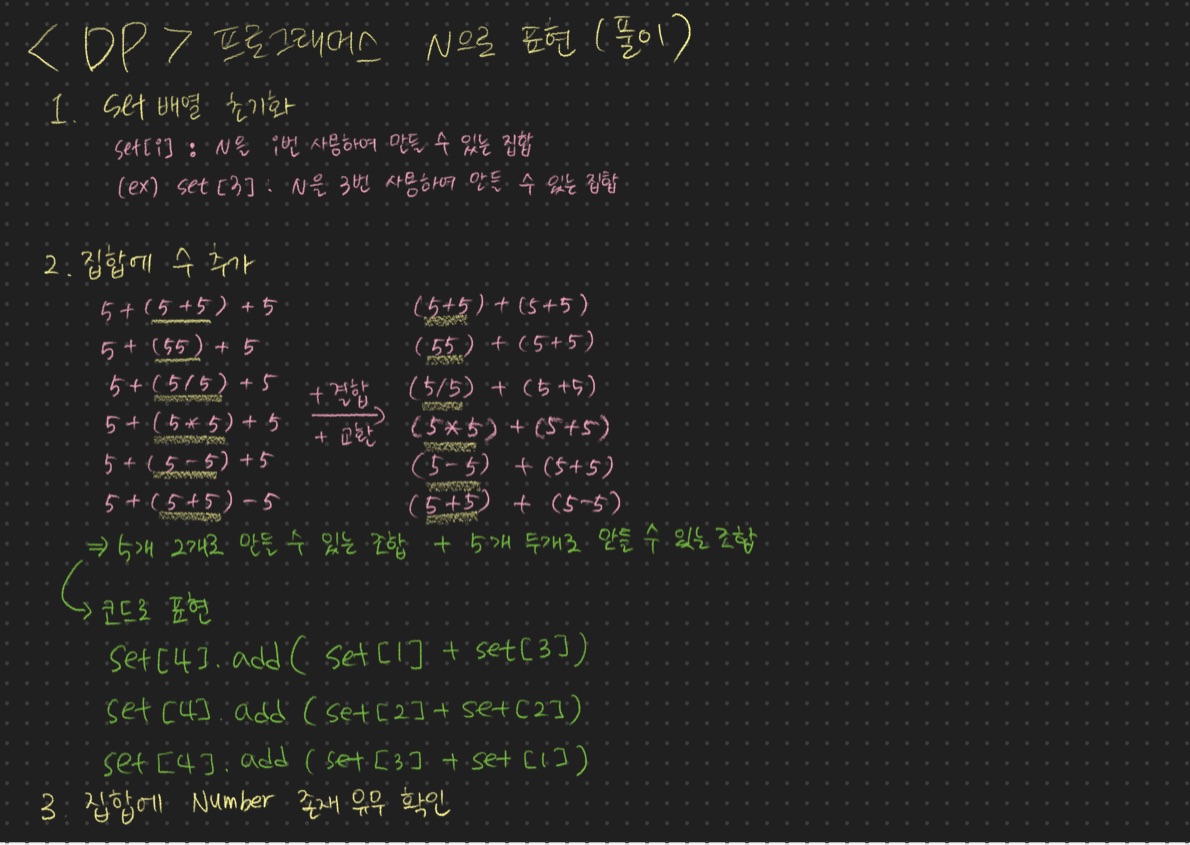 <DP> 프로그래머스 N으로 표현 (풀이)
1. Set 배열 초기화
set[i] : N을 i번 사용하여 만들 수 있는 집합
(ex) set[3] : N을 3번 사용하여 만들 수 있는 집합
2. 집합에 수 추가
5+(5+5)+5 (5+5)+(5+5)
5+(55)+5 (55)+(5+5)
5+(5/5)+5 +결합 (5/5)+(5+5)
5+(5*5)+5 + 교환 (5*5)+(5+5)
5+(5-5)+5 (5-5)+(5+5)
5+(5+5)-5 (5+5)+(5-5)
⇒ 5개 2개로 만들 수 있는 조합 + 5개 두개로 만들 수 있는 조합
→ 코드로 표현
set[4].add(set[1]+set[3])
set[4].add(set[2]+set[2])
set[4].add(set[3]+set[1])
3. 집합에 Number 존재 유무 확인